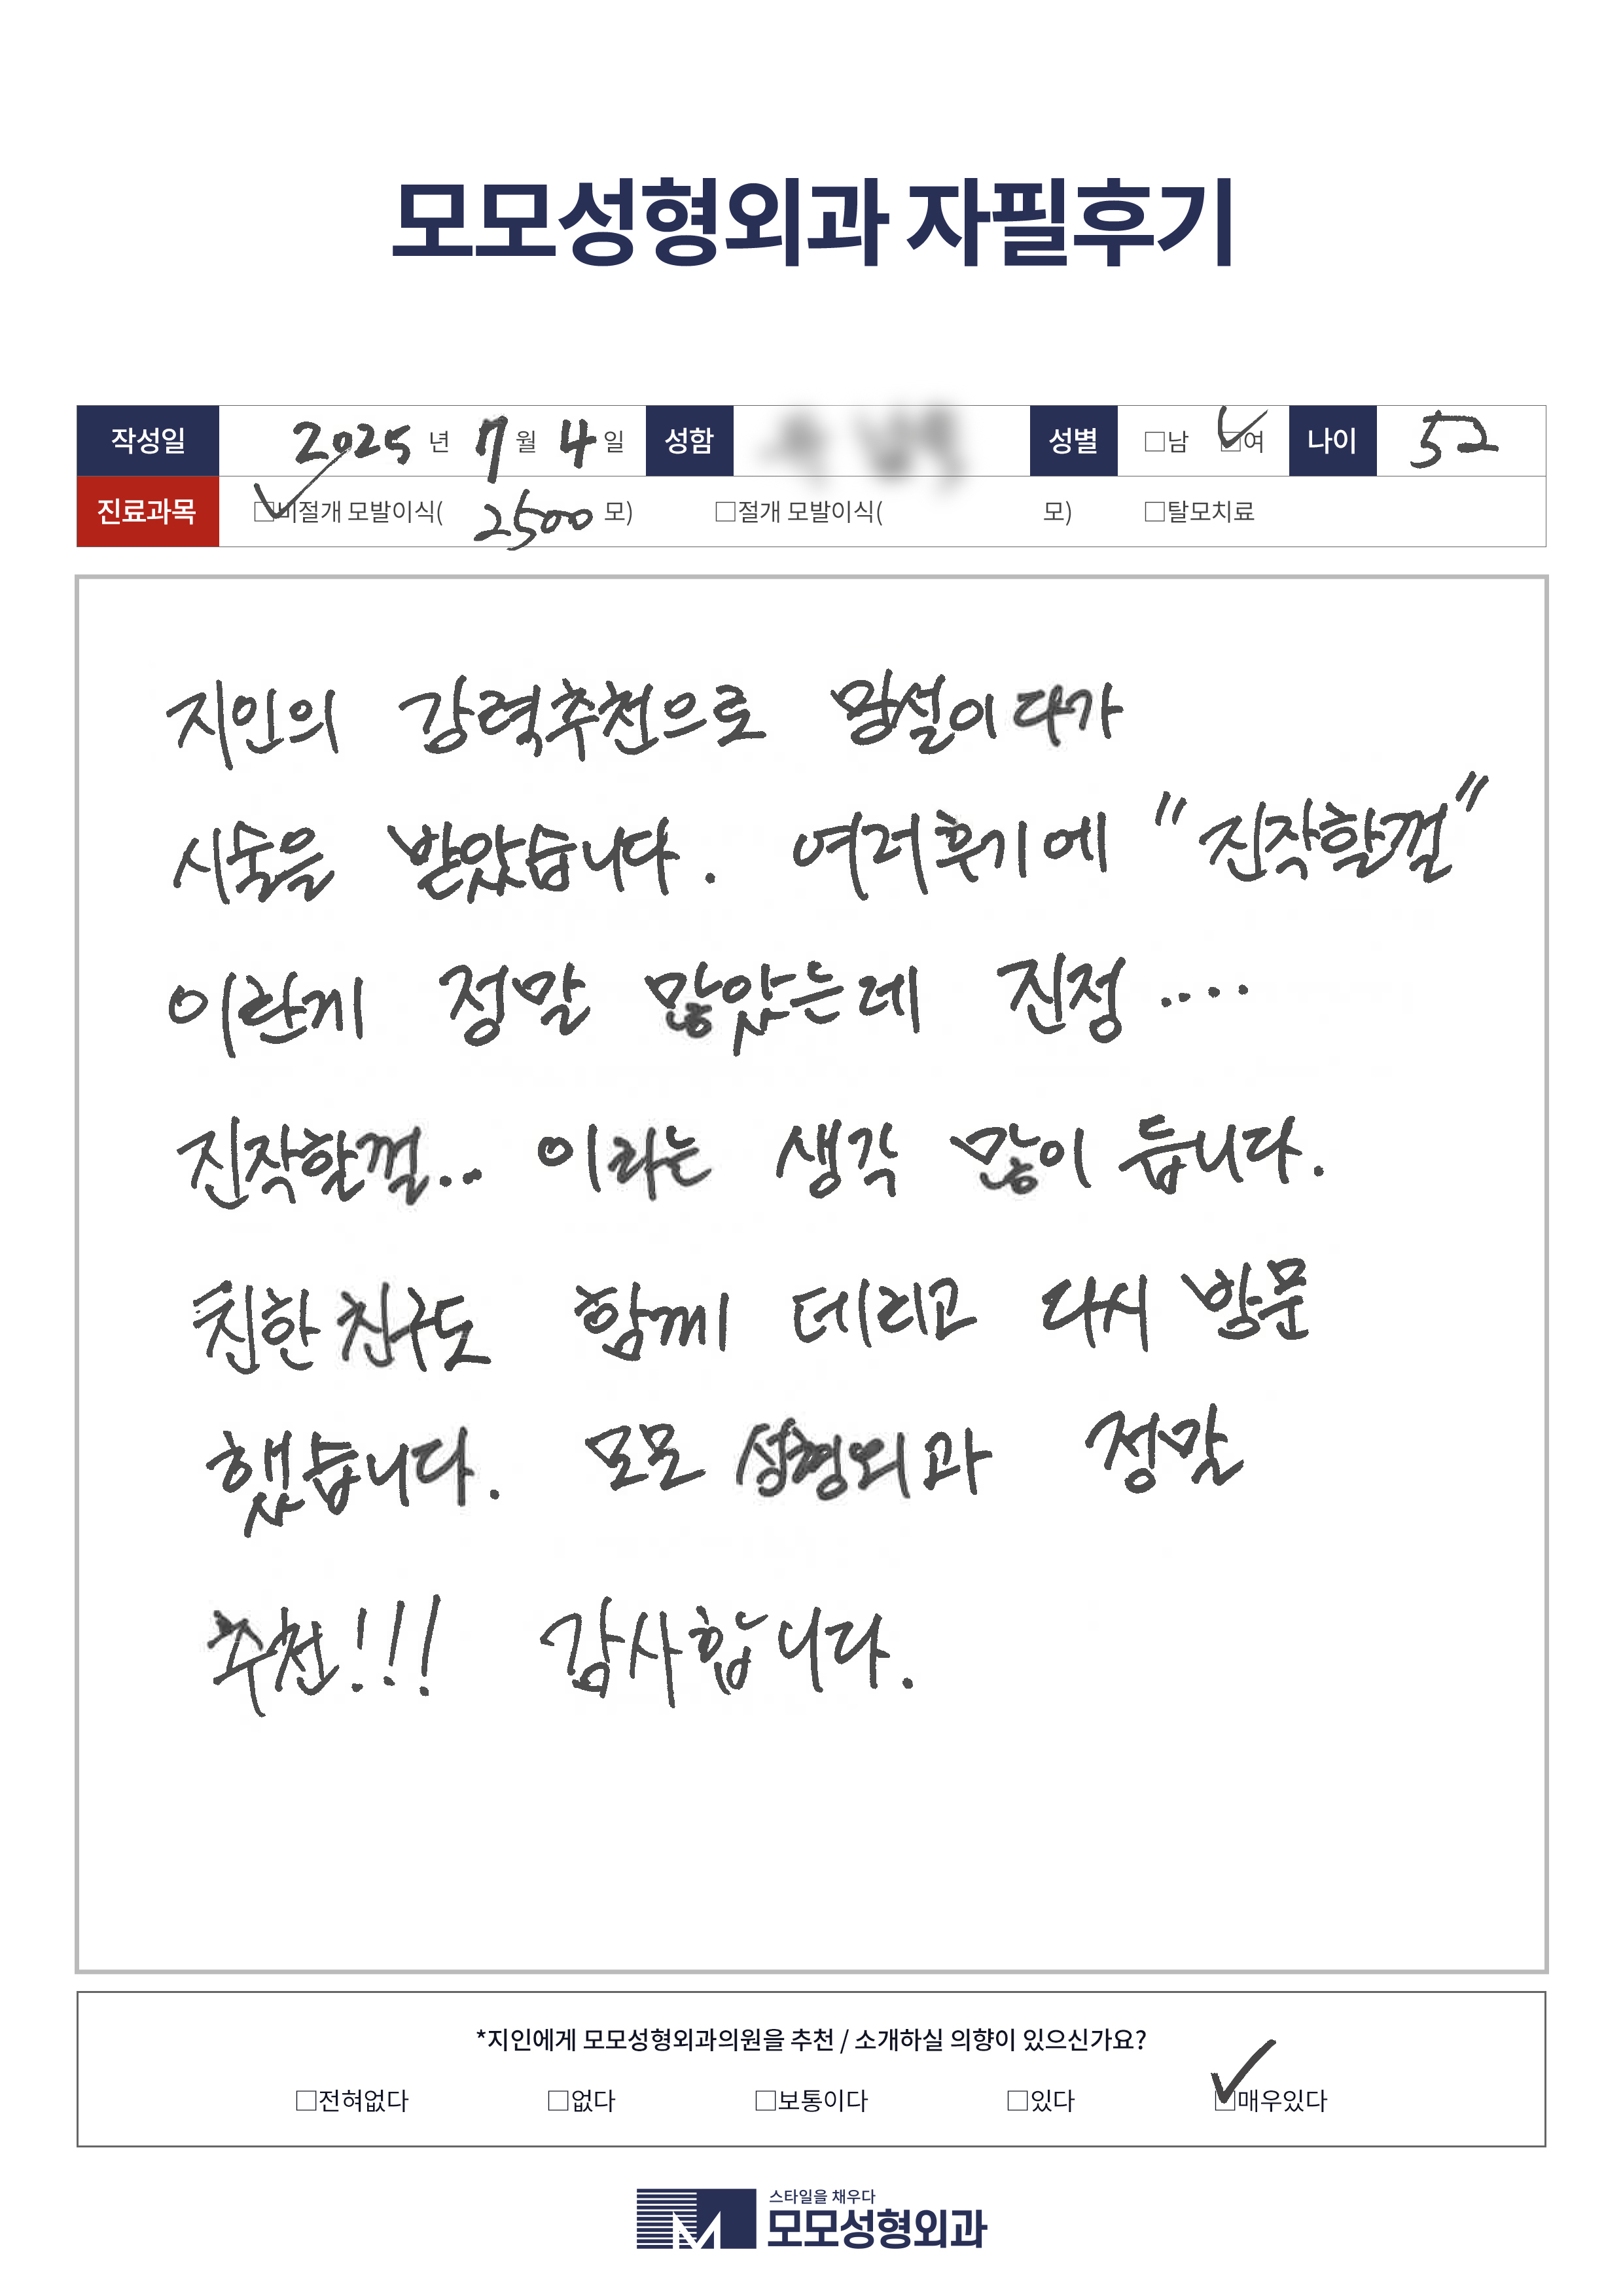 모모성형외과 자필후기
작성일 2025 년 7 월 4 일 성함 성별 □남 ☑여 나이 52
진료과목 ☑비절개 모발이식( 2500 모) □절개 모발이식( 모) □탈모치료
지인의 강력추천으로 망설이다가
시술을 받았습니다. 여러후기에 "진작할껄"
이란게 정말 많았는데 진정....
진작할껄... 이라는 생각 많이 듭니다.
친한 친구도 함께 데리고 다시 방문
했습니다. 모모 성형외과 정말
추천!!! 감사합니다.
*지인에게 모모성형외과의원을 추천 / 소개하실 의향이 있으신가요?
□전혀없다 □없다 □보통이다 □있다 ☑매우있다
스타일을 채우다
모모성형외과